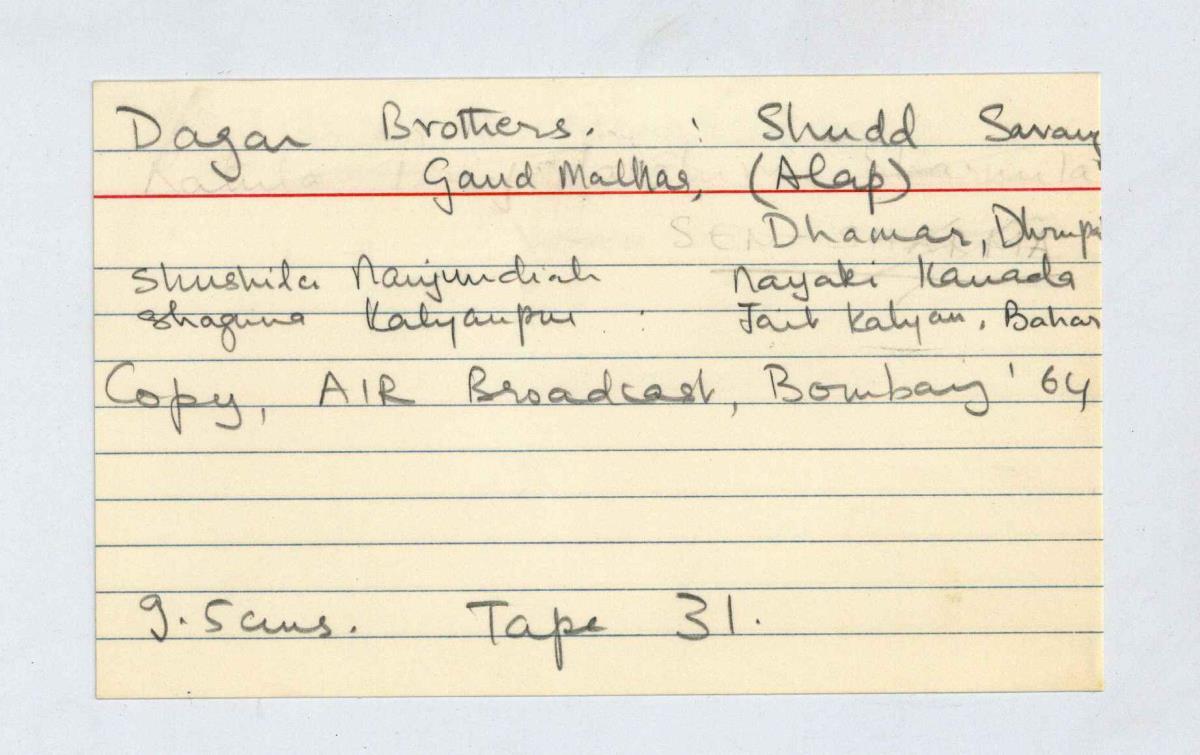 Dagar Brothers. : Shudd Sarang
Gaud Malhar, (Alap)
Dhamar, Dhrupa
Shushila Nanjundiah Nayaki Kanada
Shaguna Kalyanpur : Jait Kalyan, Bahar
Copy, AIR Broadcast, Bombay '64
9.5cms. Tape 31.